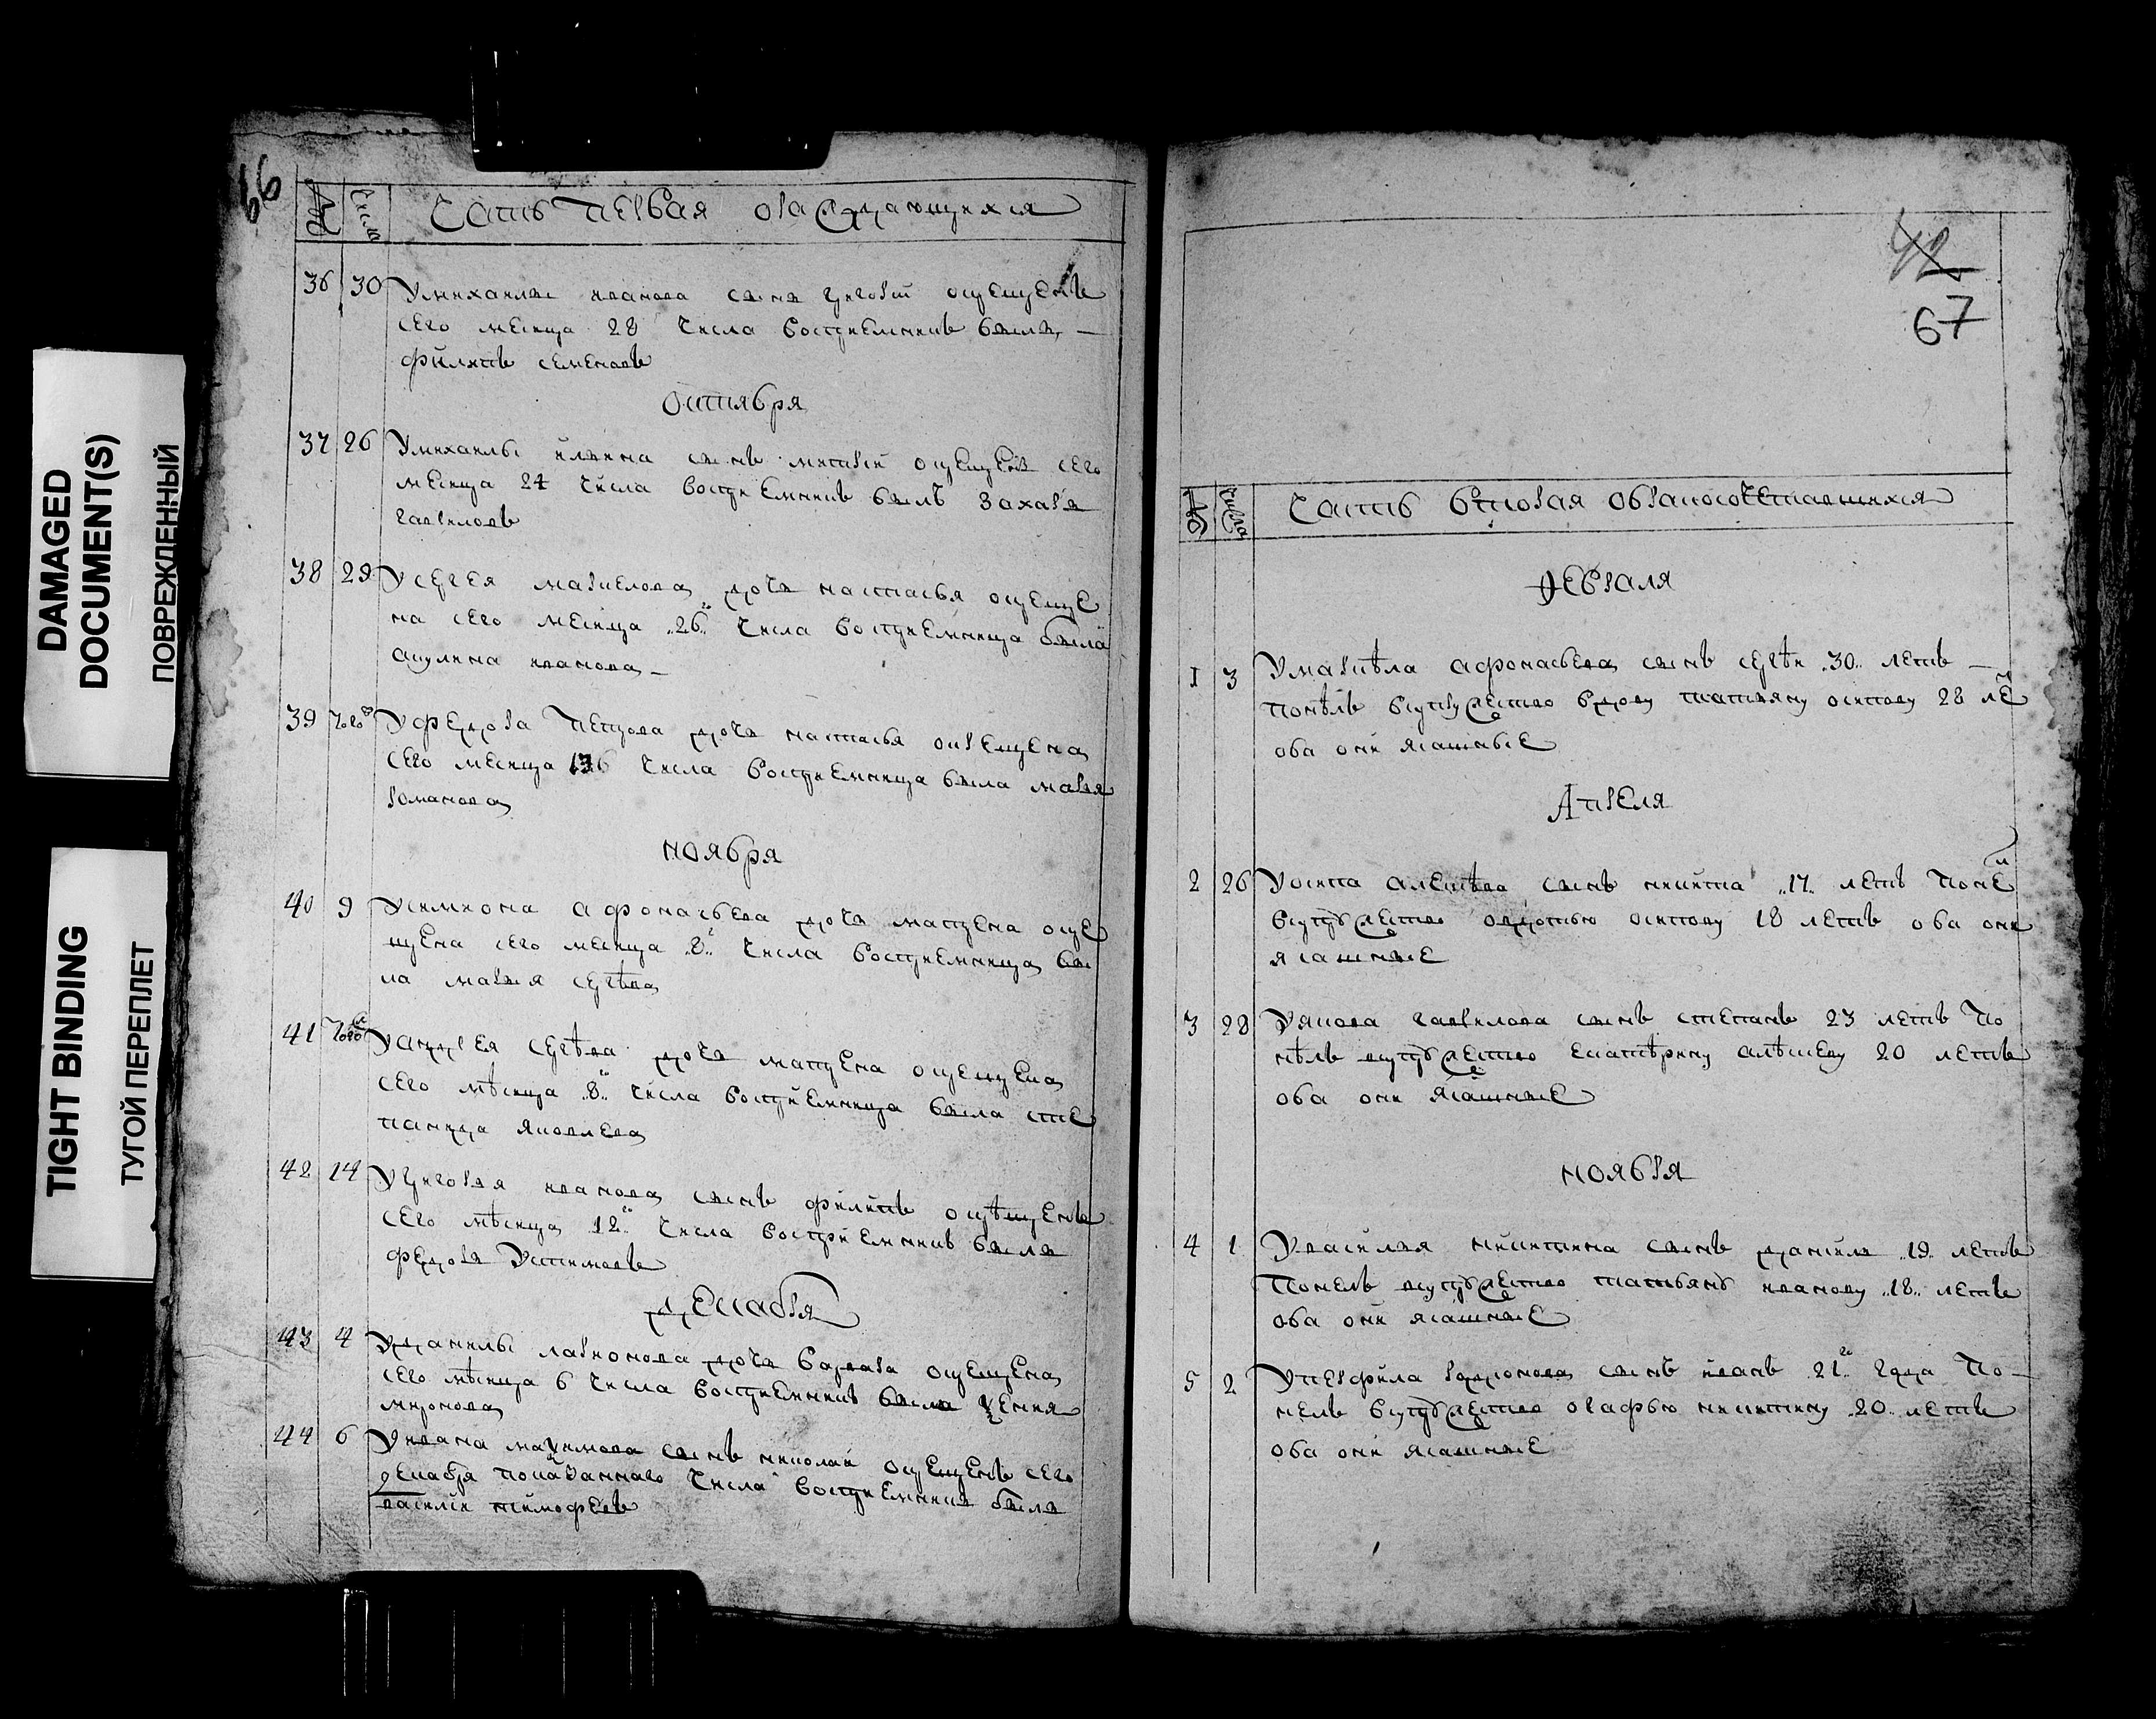 DAMAGED
DOCUMENT(S)
ПОВРЕЖДЕННЫЙ
TIGHT BINDING
ТУГОЙ ПЕРЕПЛЕТ
66
№ Число Часть первая ораждающихся
36 30 Умихаилы иванова сынъ григореи окрещенъ
сего месеца 28 числа восприемникъ былъ
филипъ семеновъ
октября
37 26 Умихаилы ильина сынъ окрещенъ сего
месеца 24 числа восприемникъ былъ захаръ
гавриловъ
38 29 Усергея маркелова дочь настасья окреще
на сего месеца 26 числа восприемница была
акулина иванова
39 того Уфедора петрова дочь настасья окрещена
сего месеца числа восприемница была марья
романова
ноября
40 9 Усимиона афонасьева дочь матрена окре
щена сего месеца 8 числа восприемница бы
ла марья сергѣева
41 того Уандрея сергѣева дочь матрена окрещена
сего мѣсеца 8 числа восприемница была сте
панида яковлева
42 14 Угригорья иванова сынъ филипъ окрѣщенъ
сего мѣсеца 12 числа восприемникъ былъ
федоръ Устиновъ
декабря
43 4 Уданилы ларионова дочь варвара окрещена
сего мѣсеца 6 числа восприемникъ была
миронова
44 6 Уивана максимова сынъ николаи окрещенъ сего
декабря показаннаго числа восприемникъ былъ
василіи тимофеевъ
42
67
№ Число Часть вторая обракосочетавшихся
Февраля
1 3 Умаркѣла афонасьева сынъ сергѣи 30 летъ
понѣлъ всупружество вдову татьяну осипову 28 ле
оба они ясашные
Апреля
2 26 Уосипа алексѣева сынъ никита 17 летъ поне
всупружество авдотью осипову 18 летъ оба они
ясашные
3 28 Уякова гаврилова сынъ степанъ 23 летъ по
нѣлъ всупружество екатѣрину алѣксеву 20 летъ
оба они ясашные
ноября
4 1 Увасилья никитина сынъ данила 19 летъ
понелъ всупружество татьяну иванову 18 летъ
оба они ясашные
5 2 Уперфила родионова сынъ иванъ 21 года по
нелъ всупружество огафью никитину 20 летъ
оба они ясашные